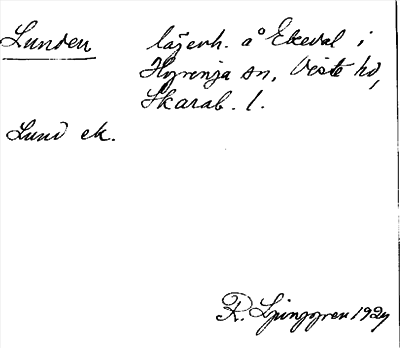 Lunden lägenh. å Ekeval i
Hyringa sn, Viste hd,
Skarab. l.
Lund ek.
R. Ljunggren 1927